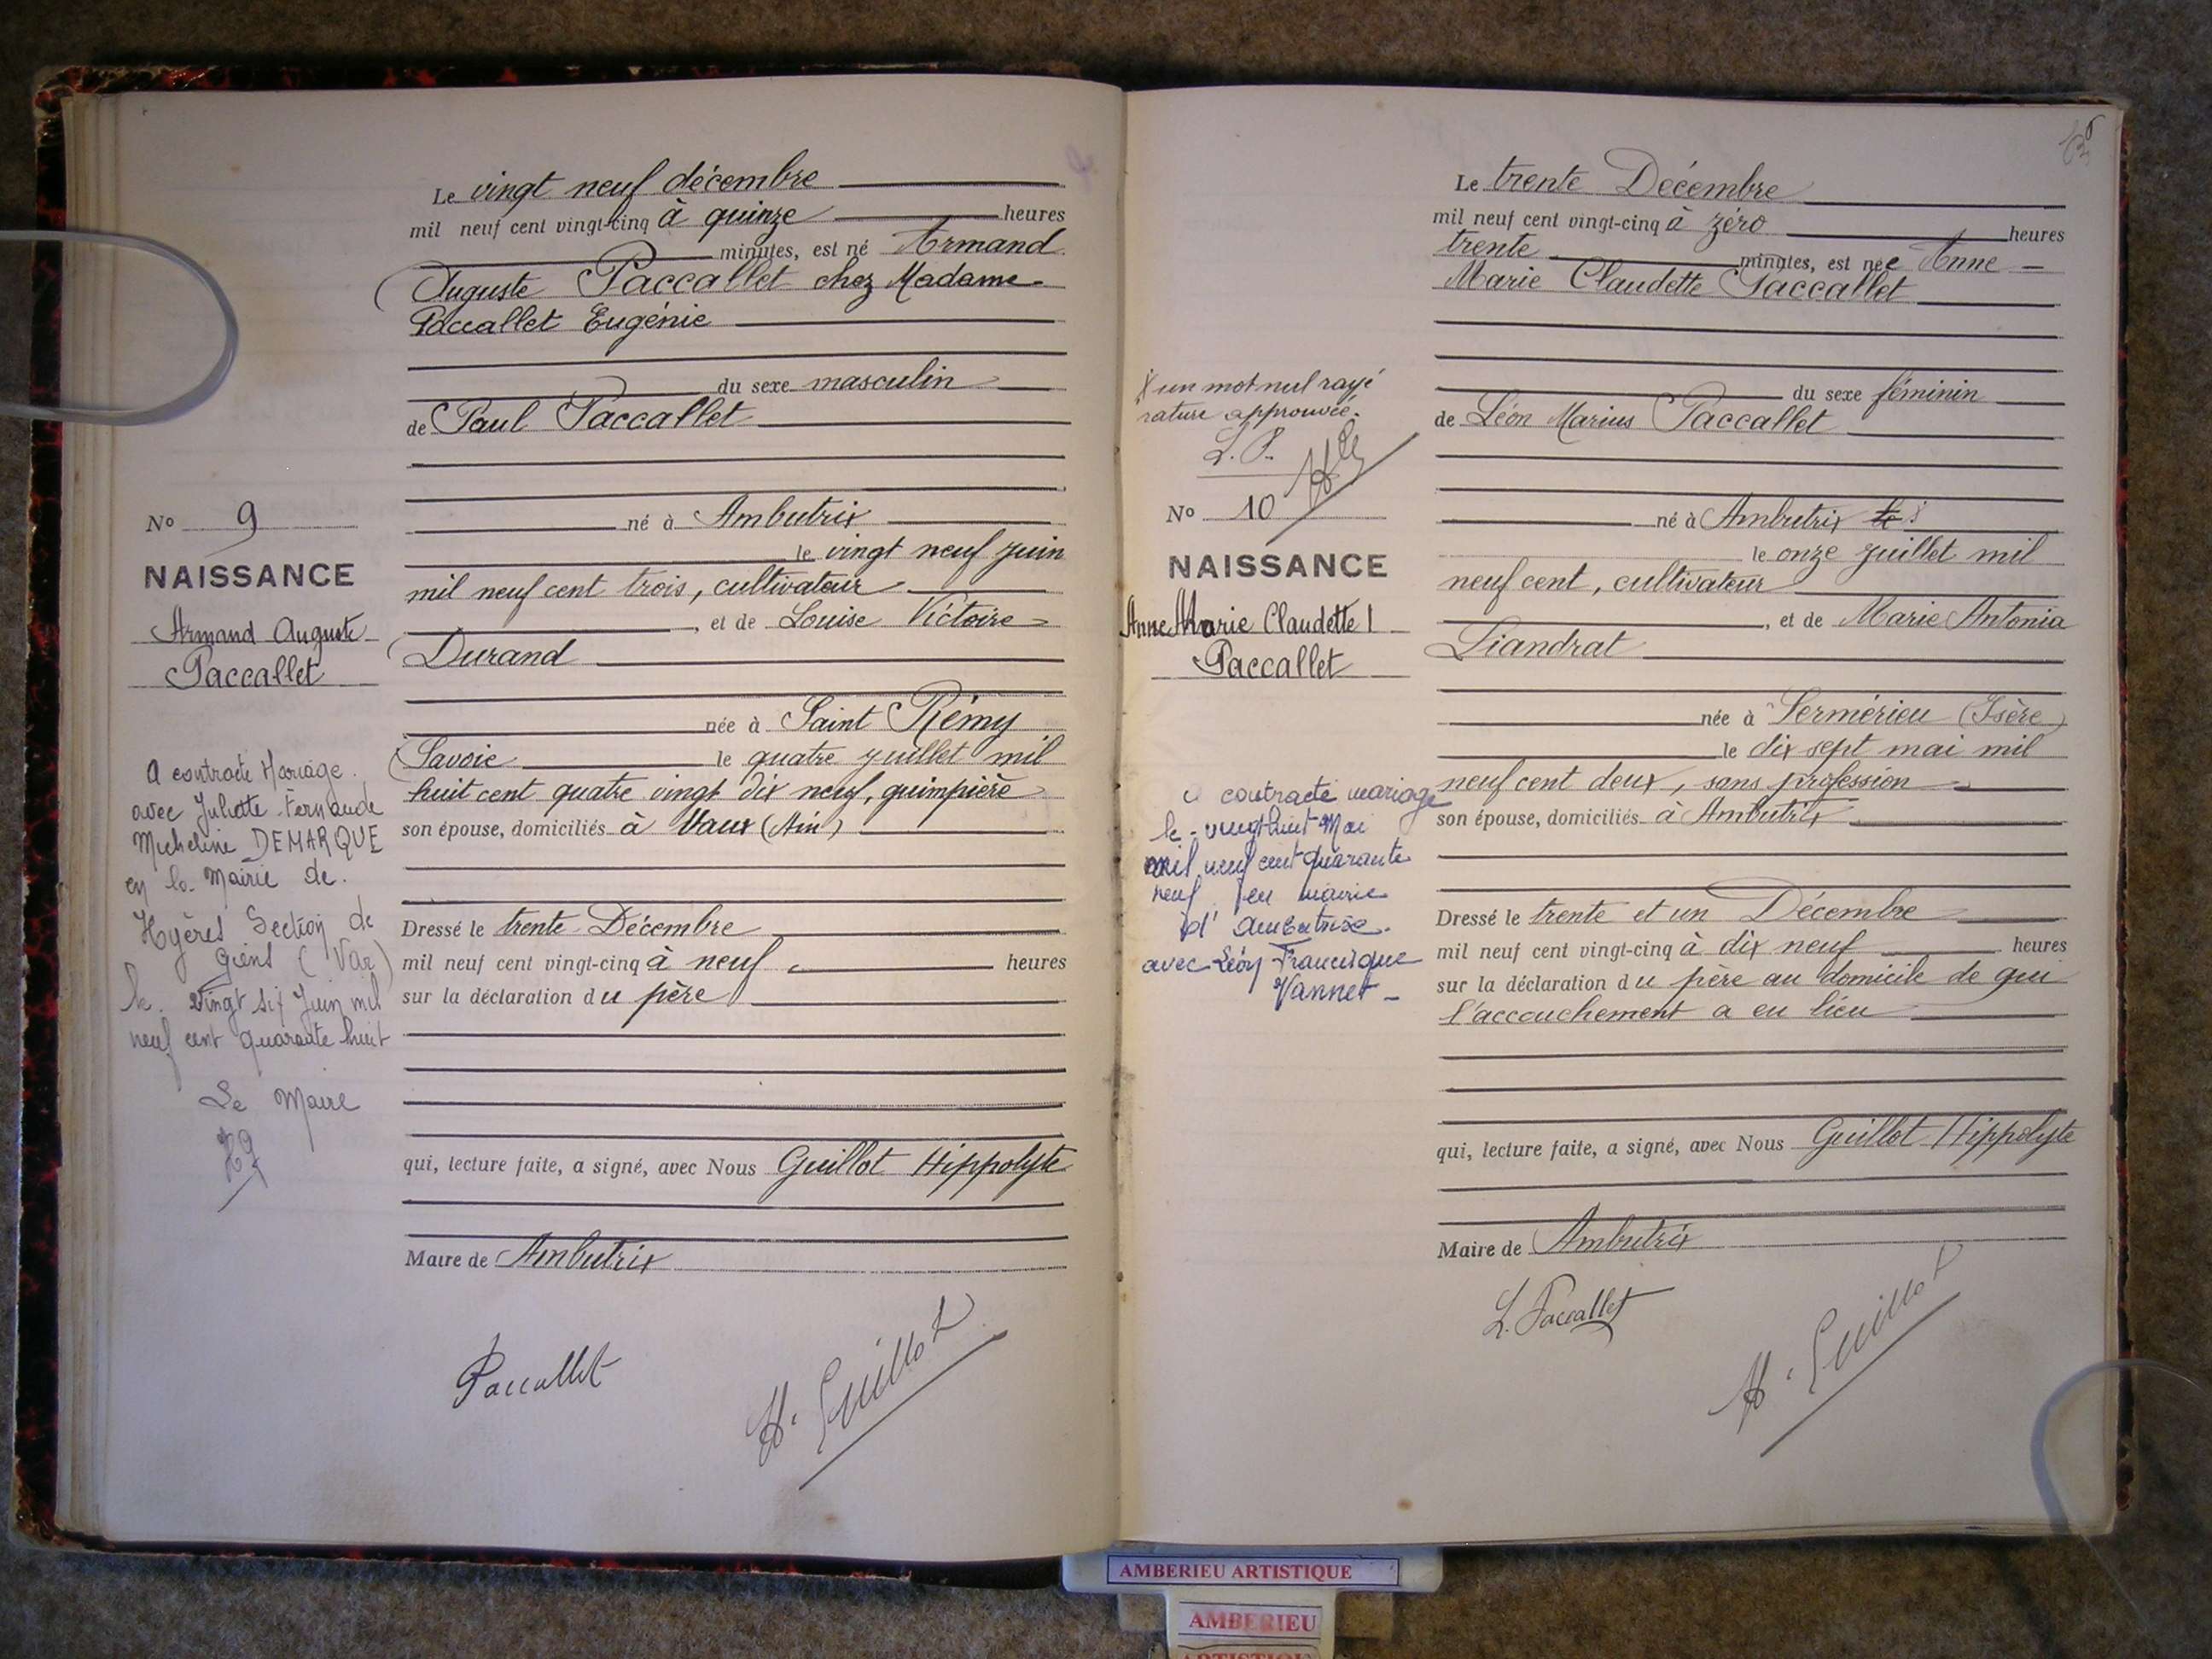 Le vingt neuf décembre
mil neuf cent vingt-cinq à quinze heures
minutes, est né Armand
Auguste Paccallet chez Madame
Paccallet Eugénie
du sexe masculin
de Paul Paccallet
né à Ambutrix
le vingt neuf juin
mil neuf cent trois, cultivateur
, et de Louise Victoire
Durand
née à Saint Rémy
Savoie le quatre juillet mil
huit cent quatre vingt dix neuf, guimpière
son épouse, domiciliés à Vaux (Ain)
Dressé le trente Décembre
mil neuf cent vingt-cinq à neuf heures
sur la déclaration du père
qui, lecture faite, a signé, avec Nous Guillot Hippolyte
Maire de Ambutrix
Paccallet
H. Guillot
No 9
NAISSANCE
Armand Auguste
Paccallet
A contracté Mariage
avec Juliette Fernande
Micheline DEMARQUE
en la Mairie de
Hyères Section de
Giens (Var)
le Vingt six Juin mil
neuf cent quarante huit
Le Maire
HG
Le trente Décembre
mil neuf cent vingt-cinq à zéro heures
trente minutes, est née Anne
Marie Claudette Paccallet
du sexe féminin
de Léon Marius Paccallet
né à Ambutrix
le onze juillet mil
neuf cent, cultivateur
, et de Marie Antonia
Liandrat
née à Sermérieu (Isère)
le dix sept mai mil
neuf cent deux, sans profession
son épouse, domiciliés à Ambutrix
Dressé le trente et un Décembre
mil neuf cent vingt-cinq à dix neuf heures
sur la déclaration du père au domicile de qui
l'accouchement a eu lieu
qui, lecture faite, a signé, avec Nous Guillot Hippolyte
Maire de Ambutrix
L. Paccallet
H. Guillot
un mot nul rayé
rature approuvée.
L. P.
No 10
NAISSANCE
Anne Marie Claudette
Paccallet
a contracté mariage
le vingt huit Mai
mil neuf cent quarante
neuf en mairie
d'Ambutrix
avec Léon Francisque
Vannet
AMBERIEU ARTISTIQUE
AMBERIEU
ARTISTIQUE